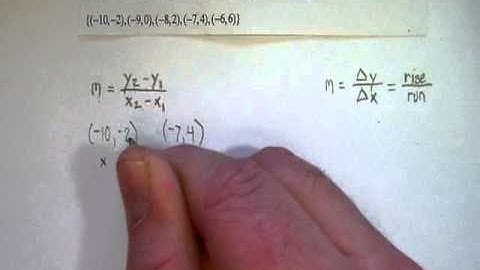 {(−10,−2),(−9,0),(−8,2),(−7,4),(−6,6)}
m = y₂−y₁ / x₂−x₁
m = Δy / Δx = rise / run
(−10,−2) (−7,4)
x